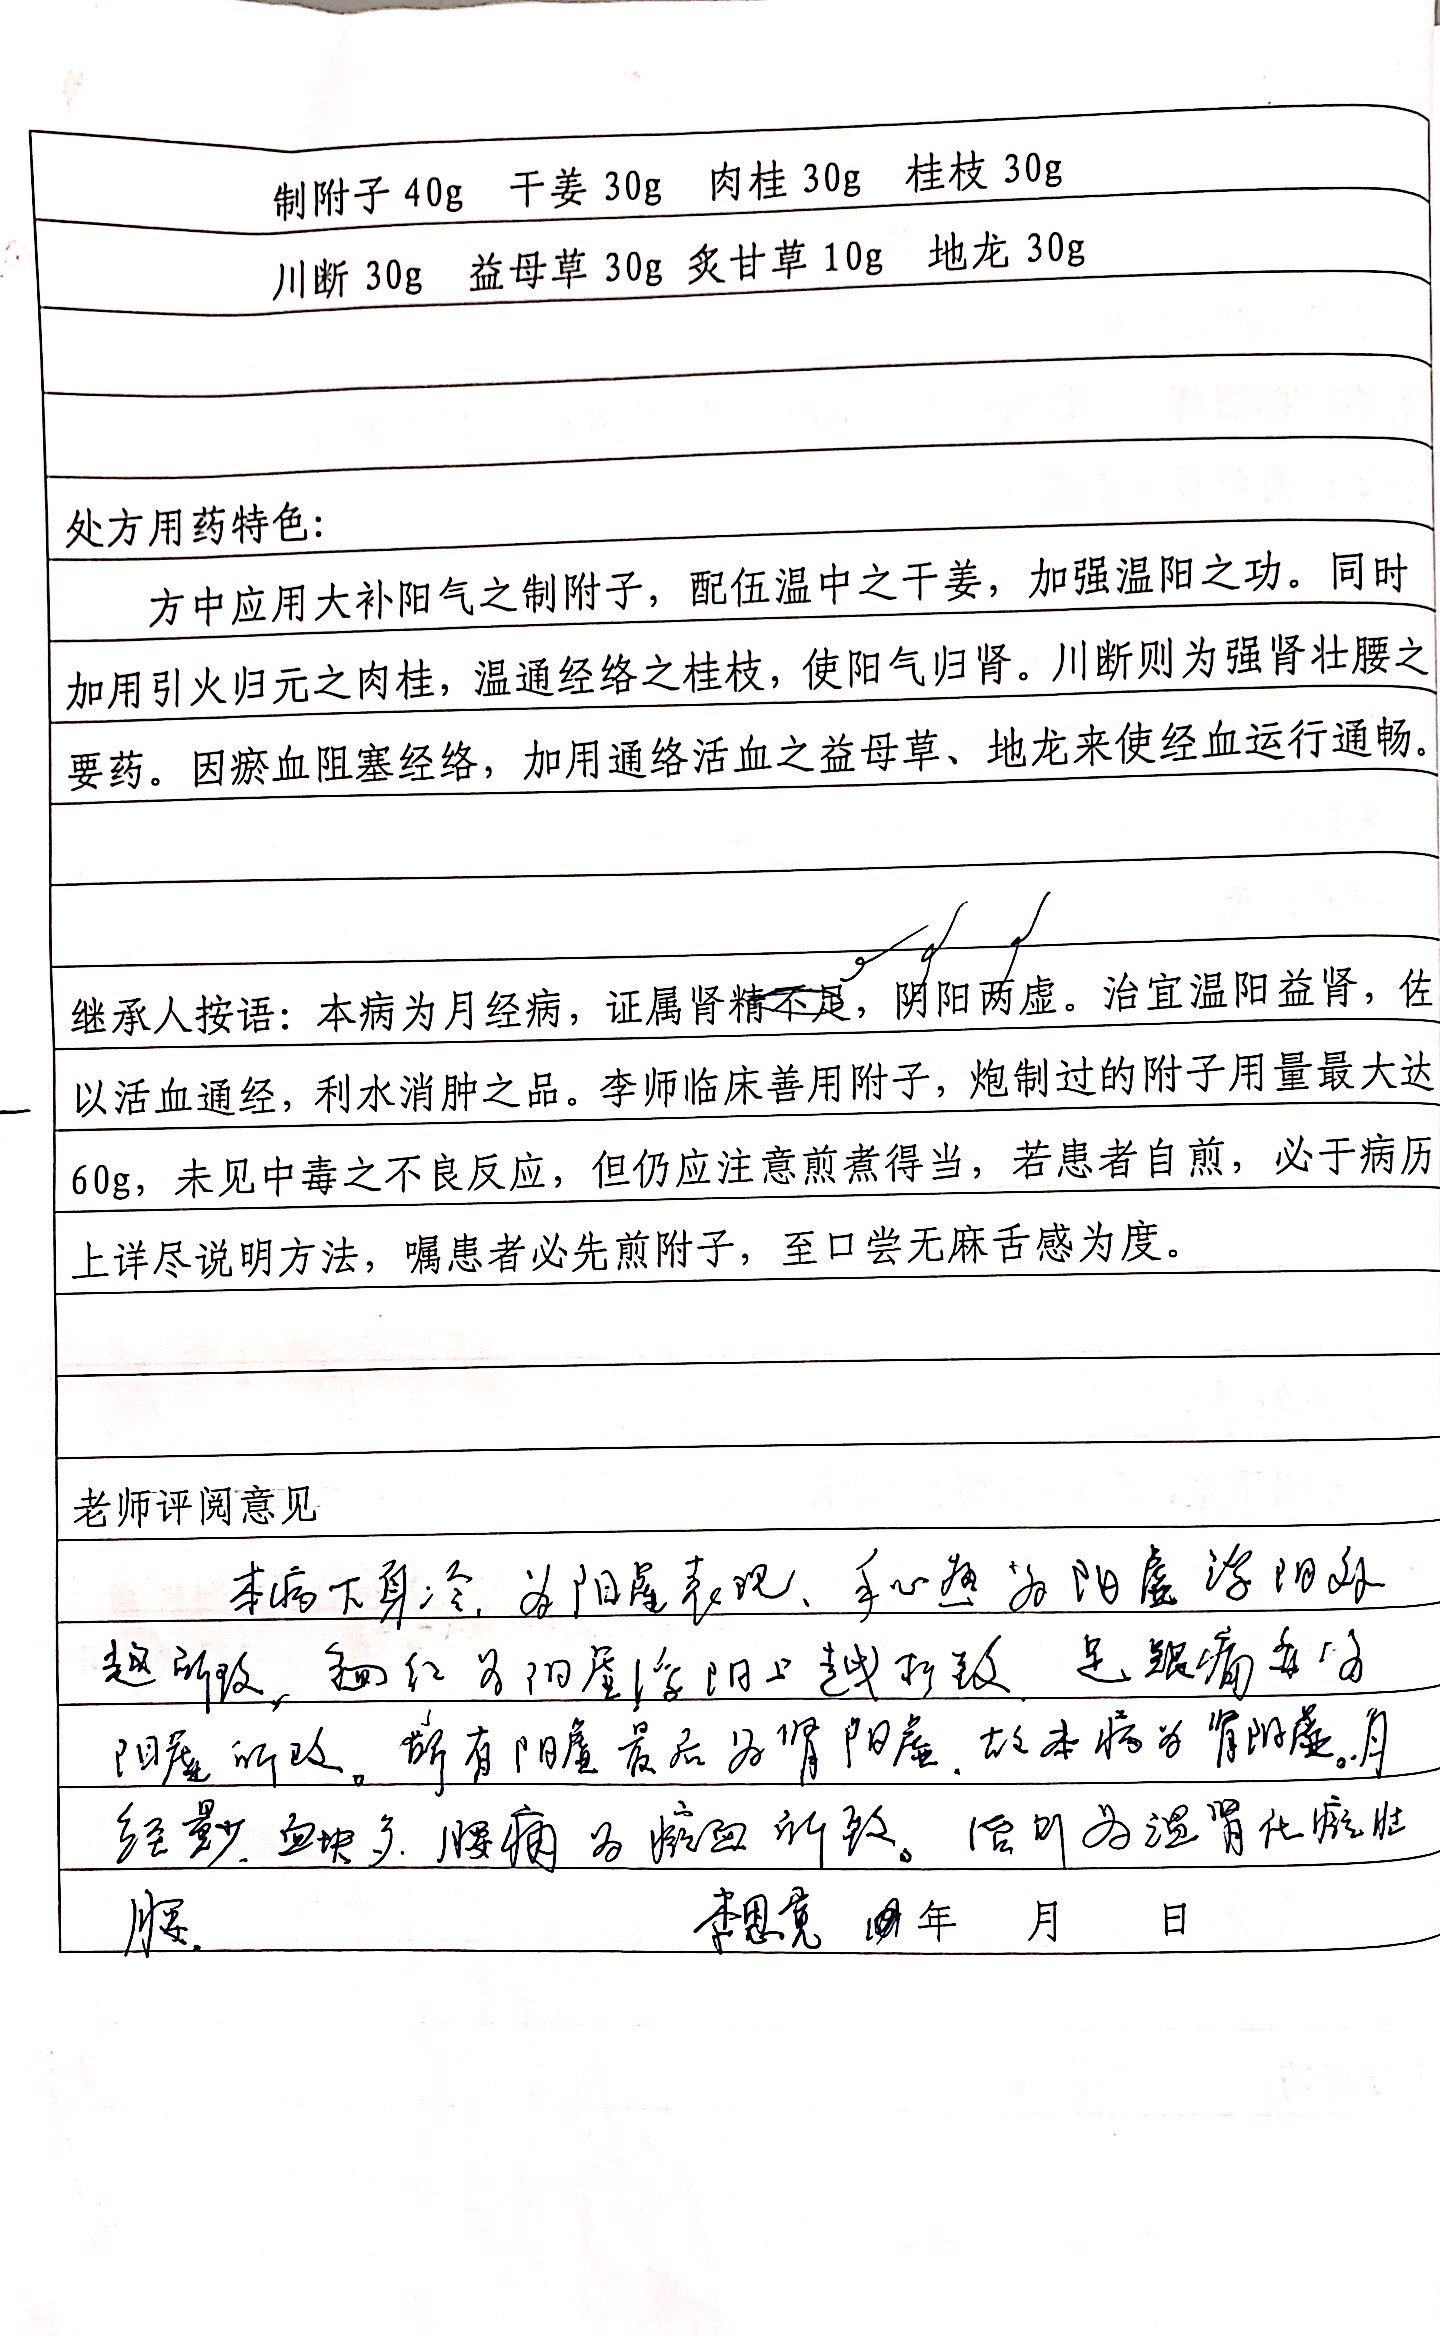 制附子 40g 干姜 30g 肉桂 30g 桂枝 30g
川断 30g 益母草 30g 炙甘草 10g 地龙 30g
处方用药特色：
方中应用大补阳气之制附子，配伍温中之干姜，加强温阳之功。同时
加用引火归元之肉桂，温通经络之桂枝，使阳气归肾。川断则为强肾壮腰之
要药。因瘀血阻塞经络，加用通络活血之益母草、地龙来使经血运行通畅。
继承人按语：本病为月经病，证属肾精不足，阴阳两虚。治宜温阳益肾，佐
以活血通经，利水消肿之品。李师临床善用附子，炮制过的附子用量最大达
60g，未见中毒之不良反应，但仍应注意煎煮得当，若患者自煎，必于病历
上详尽说明方法，嘱患者必先煎附子，至口尝无麻舌感为度。
老师评阅意见
本病下身冷、为阳虚表现、手心热为阳虚浮阳外
越所致，面红为阳虚浮阳上越所致、足跟痛亦为
阳虚所致。所有阳虚最后为肾阳虚、故本病为肾阳虚。月
经量少、血块多、腰痛为瘀血所致。治则为温肾化瘀壮
腰. 李思 年 月 日